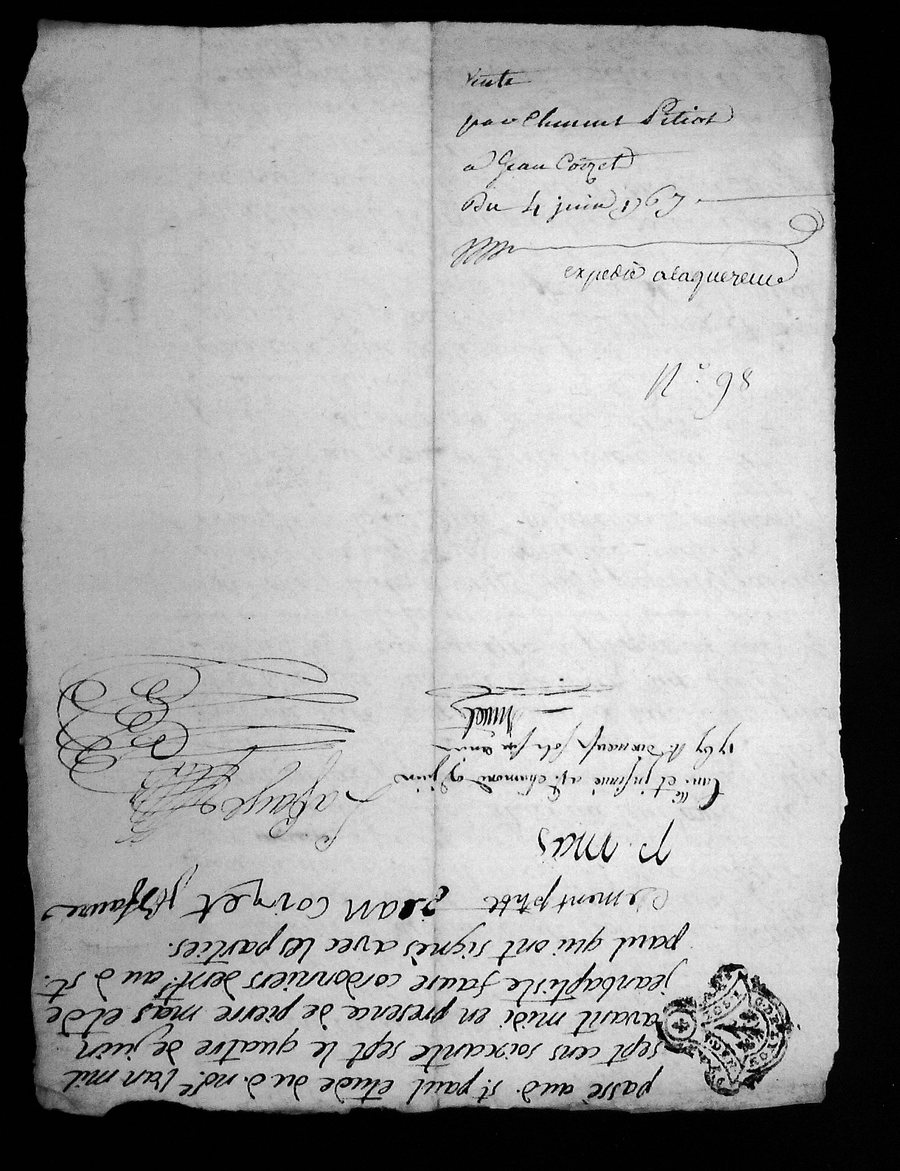 Vente
par Clement Pitiot
a Jean Coizet
Du 4 juin 1767
expedié alaquereur
N.º 98
passé aud. st. paul etude dud. nore. l'an mil
sept cens soixante sept le quatre de juin
avant midi en presence de pierre mas et de
jean baptiste faure cordonniers dem.t au d st.
paul qui ont signés avec les parties.
Clement Jean Coizet jB faure
p. mas
Lafaye
1767